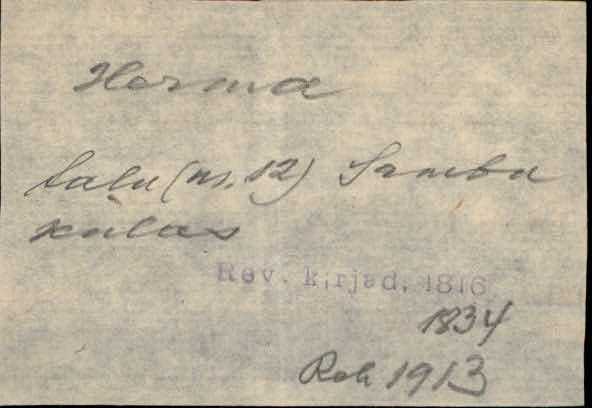 Horma
talu (nr. 12) Samba
külas
Rev. kirjad, 1816
1834
Roh 1913